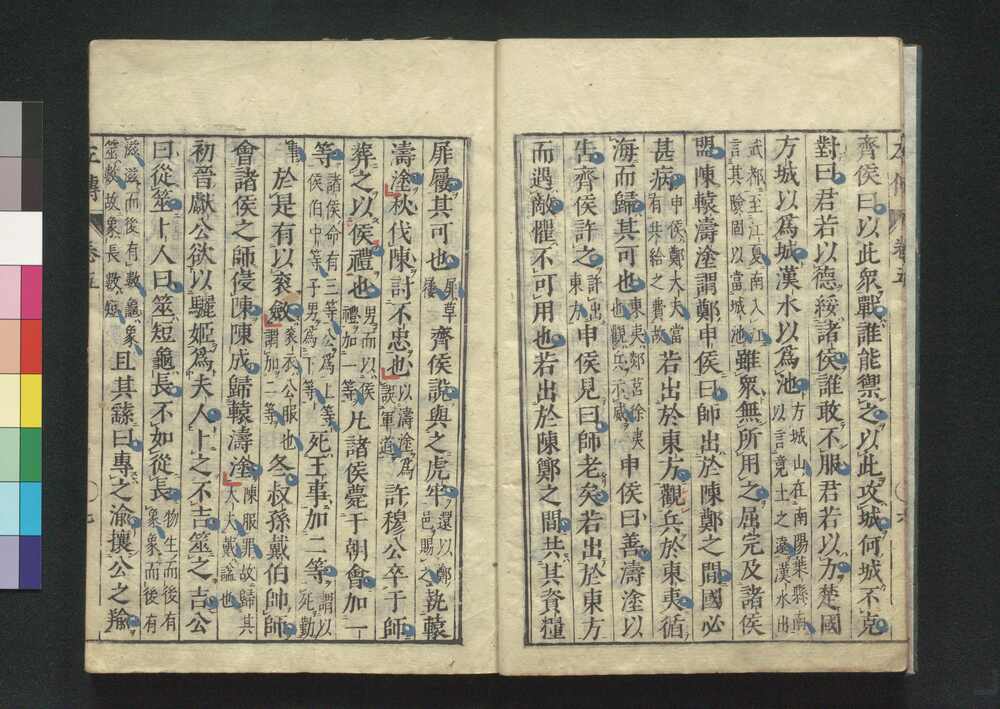 齊侯曰以此衆戰誰能禦之以此攻城何城不克
對曰君若以德綏諸侯誰敢不服君若以力楚國
方城以爲城漢水以爲池方城山在南陽葉縣南以言竟土之遠漢水出
武都至江夏南入江言其險固以當城池雖衆無所用之屈完及諸侯
盟陳轅濤塗謂鄭申侯曰師出於陳鄭之間國必
甚病申侯鄭大夫當有共給之費故若出於東方觀兵於東夷循
海而歸其可也東夷郯莒徐夷也觀兵示威申侯曰善濤塗以
告齊侯許之許出東方申侯見曰師老矣若出於東方
而遇敵懼不可用也若出於陳鄭之間共其資糧
屝屨其可也屝草屨齊侯說與之虎牢還以鄭邑賜之執轅
濤塗秋伐陳討不忠也以濤塗爲誤軍道許穆公卒于師
葬之以侯禮也男而以侯禮加一等凡諸侯薨于朝會加一
等諸侯命有三等公爲上等侯伯中等子男爲下等死王事加二等謂以死勤
事於是有以衮斂衮衣公服也謂加二等冬叔孫戴伯帥師
會諸侯之師侵陳陳成歸轅濤塗陳服罪故歸其大夫戴謚也
初晉獻公欲以驪姬爲夫人卜之不吉筮之吉公
曰從筮卜人曰筮短龜長不如從長物生而後有象象而後有
滋滋而後有數龜象筮數故象長數短且其繇曰專之渝攘公之羭
左傳 卷五 七
左傳 卷五 六